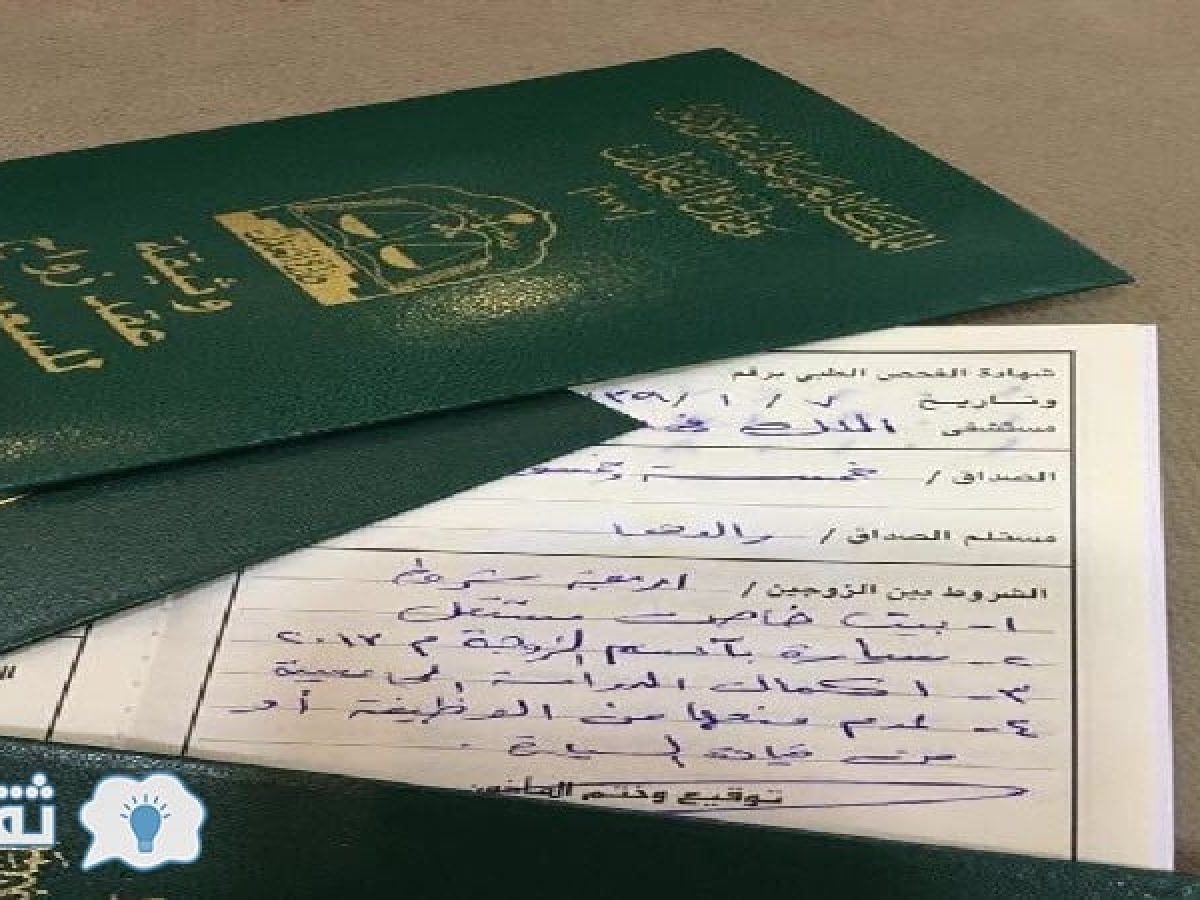 المملكة العربية السعودية
وزارة العدل
وزارة العدل
وثيقة
عقد زواج
للسعو
شهادة الفحص الطبي برقم
وتاريخ ٧ / ١ / ٣٩
مستشفى الملك
الصداق / خمسة
مستلم الصداق / والدها
الشروط بين الزوجين / اربعة شروط
١- بيت خاص مستقل
٢- سيارة بآسم الزوجة م ٢٠١٧
٣- اكمال الدراسة
٤- عدم منعها من الوظيفة أو
من قيادة السيارة .
توقيع وختم المأذون
ثق